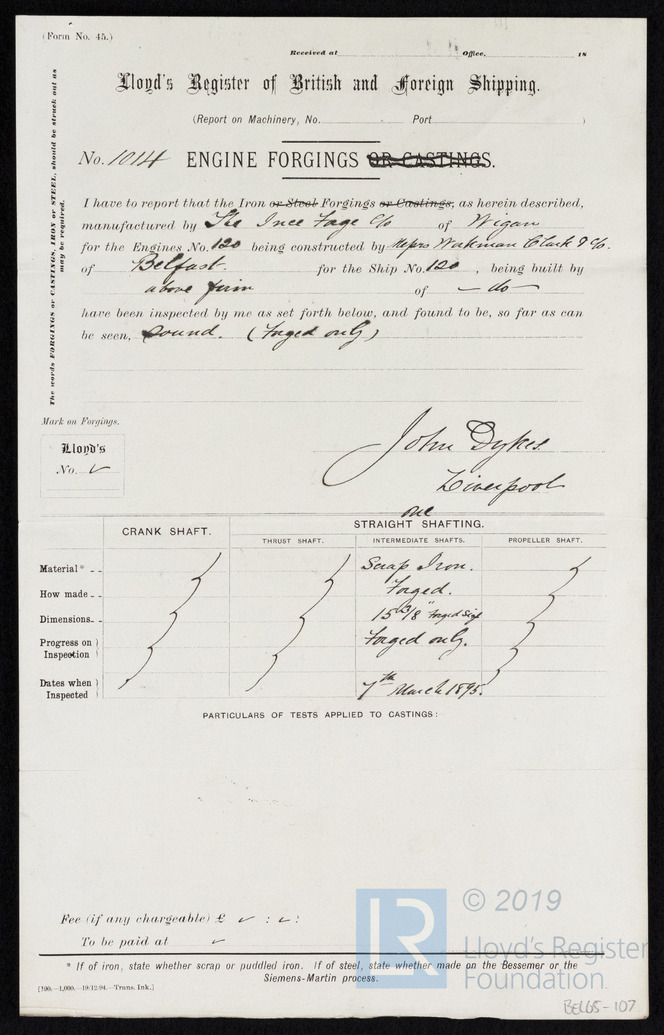 (Form No. 45.)
Received at Office, 18
Lloyd's Register of British and Foreign Shipping.
(Report on Machinery, No. Port )
No. 1014 ENGINE FORGINGS OR CASTINGS.
I have to report that the Iron or Steel Forgings or Castings, as herein described,
manufactured by The Ince Forge Co of Wigan
for the Engines No. 120 being constructed by Messrs Workman Clark & Co.
of Belfast. for the Ship No. 120, being built by
above firm of - do -
have been inspected by me as set forth below, and found to be, so far as can
be seen, Sound. (Forged only)
The words FORGINGS or CASTINGS, IRON or STEEL, should be struck out as
may be required.
Mark on Forgings.
Lloyd's
No. ✓
John Dykes.
Liverpool
one
CRANK SHAFT. STRAIGHT SHAFTING.
THRUST SHAFT. INTERMEDIATE SHAFTS. PROPELLER SHAFT.
Material* Scrap Iron.
How made Forged.
Dimensions 15 3/8" Forged Size
Progress on Inspection Forged only.
Dates when Inspected 7th March 1895.
PARTICULARS OF TESTS APPLIED TO CASTINGS:
Fee (if any chargeable) £ ✓ : ✓ :
To be paid at ✓
* If of iron, state whether scrap or puddled iron. If of steel, state whether made on the Bessemer or the
Siemens-Martin process.
[190.—1,000.—19/12/94.—Trans. Ink.]
LR
© 2019
Lloyd's Register
Foundation
BEL65-107